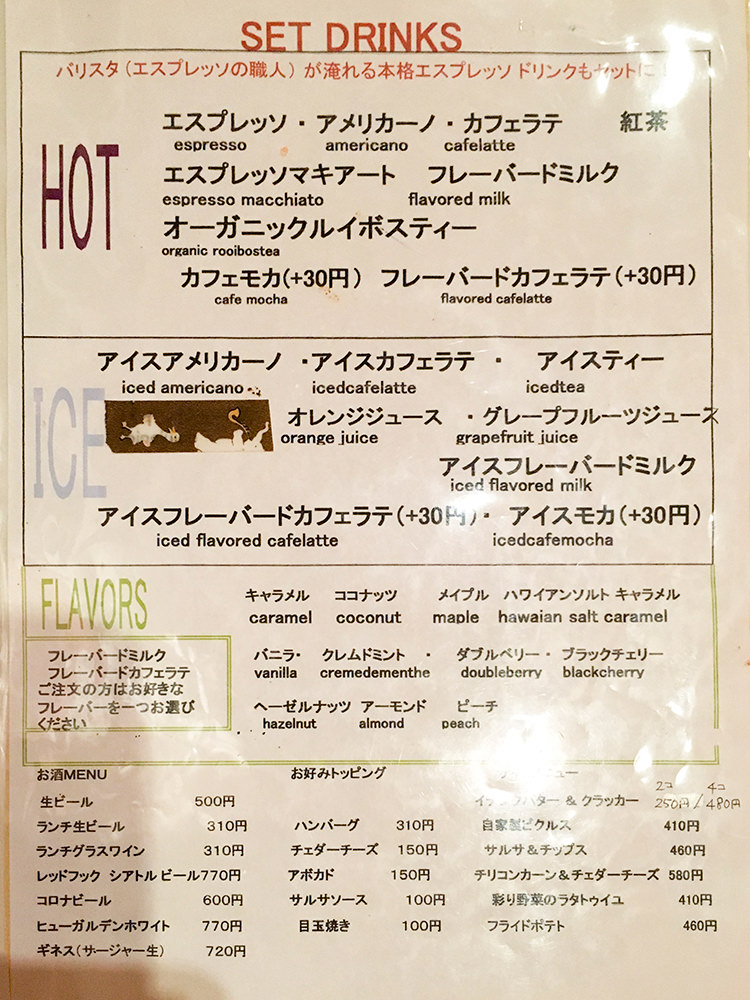 SET DRINKS
バリスタ（エスプレッソの職人）が淹れる本格エスプレッソドリンクもセットに
HOT
エスプレッソ・アメリカーノ・カフェラテ 紅茶
espresso americano cafelatte
エスプレッソマキアート フレーバードミルク
espresso macchiato flavored milk
オーガニックルイボスティー
organic rooibostea
カフェモカ(+30円) フレーバードカフェラテ(+30円)
cafe mocha flavored cafelatte
ICE
アイスアメリカーノ ・アイスカフェラテ ・ アイスティー
iced americano icedcafelatte icedtea
オレンジジュース ・グレープフルーツジュース
orange juice grapefruit juice
アイスフレーバードミルク
iced flavored milk
アイスフレーバードカフェラテ(+30円)・ アイスモカ(+30円)
iced flavored cafelatte icedcafemocha
FLAVORS
キャラメル ココナッツ メイプル ハワイアンソルト キャラメル
caramel coconut maple hawaian salt caramel
バニラ・ クレムドミント ・ ダブルベリー・ ブラックチェリー
vanilla cremedementhe doubleberry blackcherry
ヘーゼルナッツ アーモンド ピーチ
hazelnut almond peach
フレーバードミルク
フレーバードカフェラテ
ご注文の方はお好きな
フレーバーを一つお選び
ください
お酒MENU
生ビール 500円
ランチ生ビール 310円
ランチグラスワイン 310円
レッドフック シアトル ビール770円
コロナビール 600円
ヒューガルデンホワイト 770円
ギネス(サージャー生) 720円
お好みトッピング
ハンバーグ 310円
チェダーチーズ 150円
アボカド 150円
サルサソース 100円
目玉焼き 100円
ニュー
2コ 4コ
バター & クラッカー 250円/480円
自家製ピクルス 410円
サルサ&チップス 460円
チリコンカーン&チェダーチーズ 580円
彩り野菜のラタトゥイユ 410円
フライドポテト 460円